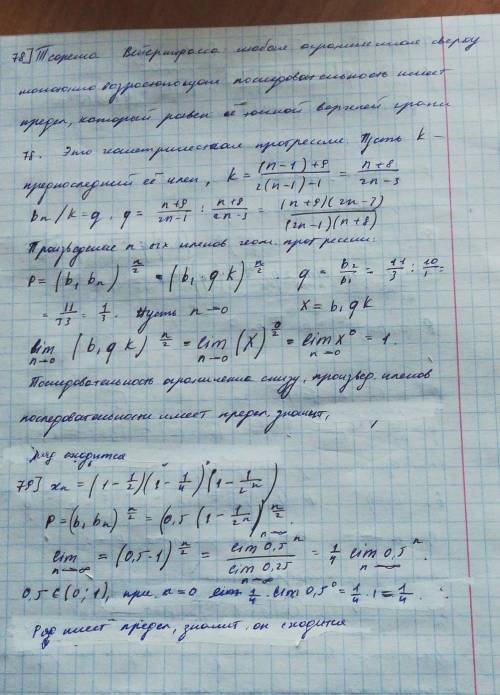 78] Теорема Вейерштрасса любая ограниченная сверху
монотонно возрастающая последовательность имеет
предел, который равен её точной верхней грани
78. Это геометрическая прогрессия. Пусть k –
предпоследний её член, k = (n-1)+9 / 2(n-1)-1 = n+8 / 2n-3
bn/k = q. q = n+9 / 2n-1 : n+8 / 2n-3 = (n+9)(2n-3) / (2n-1)(n+8)
Произведение n-ых членов геом. прогрессии:
P = (b₁ bn)^(n/2) = (b₁ · q k)^(n/2). q = b₂/b₁ = 11/3 : 10/1 =
= 11/33 = 1/3. Пусть n→0 X = b₁ q k
lim n→0 (b₁ q k)^(n/2) = lim n→0 (X)^(0/2) = lim n→0 X⁰ = 1.
Последовательность ограничена снизу, произвед. членов
последовательности имеет предел, значит,
ряд сходится
79] xn = (1 - 1/2)(1 - 1/4)(1 - 1/2ⁿ)
P = (b₁ bn)^(n/2) = (0,5 (1 - 1/2ⁿ))^(n/2) n→∞
lim n→∞ = (0,5·1)^(n/2) = lim 0,5ⁿ / lim 0,25 n→∞ = 1/4 lim 0,5ⁿ n→∞
0,5 ∈ (0; 1), при n=0 1/4 · lim 0,5⁰ = 1/4 · 1 = 1/4.
Ряд имеет предел, значит он сходится